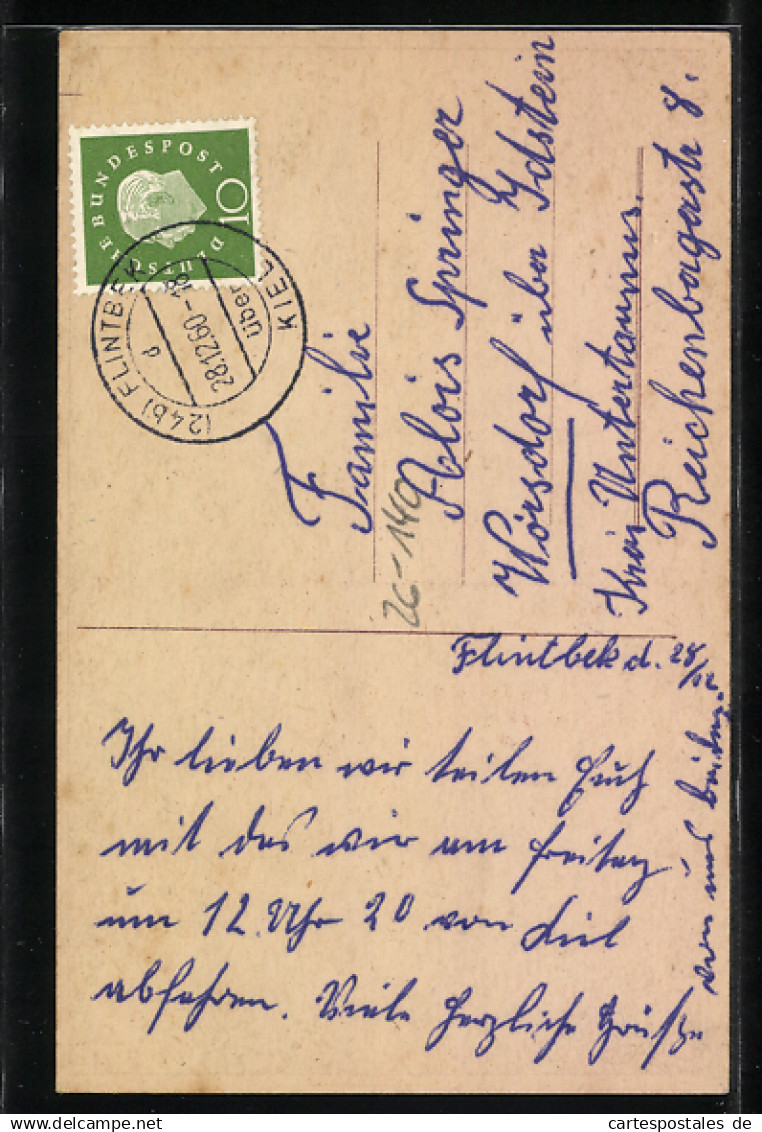 DEUTSCHE BUNDESPOST
10
(24b) FLINTBEK
über
KIEL
28.12.60-18
d
Familie
Alois Springer
Wörsdorf über Idstein
Kreis Untertaunus.
Reichenbagastr 8.
26-140
Flintbek d. 28/12
Ihr lieben wir teilen Euch
mit das wir am Freitag
um 12 Uhr 20 von Kiel
abfahren. Viele herzliche Grüße
von uns beiden.
cartespostales de